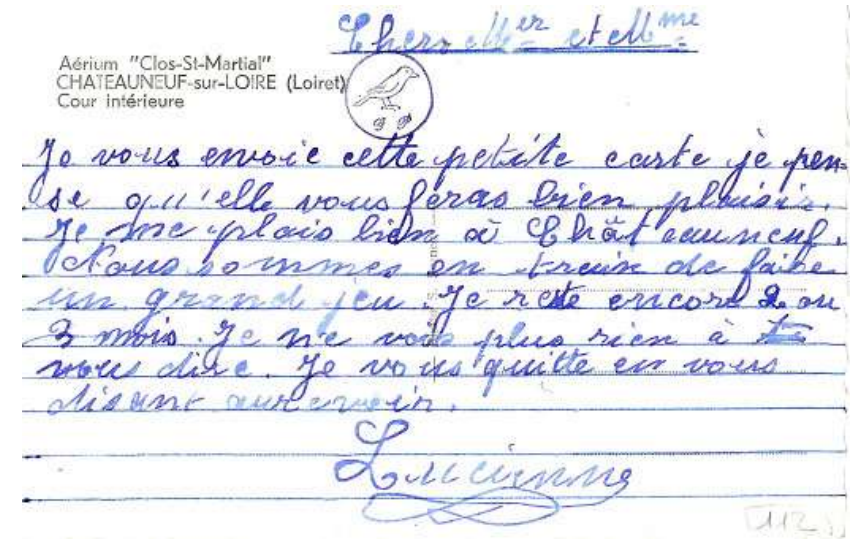 Chers Mer et Mme
Aérium "Clos-St-Martial"
CHATEAUNEUF-sur-LOIRE (Loiret)
Cour intérieure
Je vous envoie cette petite carte je pen-
se qu'elle vous feras bien plaisir.
Je me plais bien à Châteauneuf.
Nous sommes en train de faire
un grand jeu. Je reste encore 2 ou
3 mois. Je ne vois plus rien à
vous dire. Je vous quitte en vous
disant aurevoir.
Lucienne
112